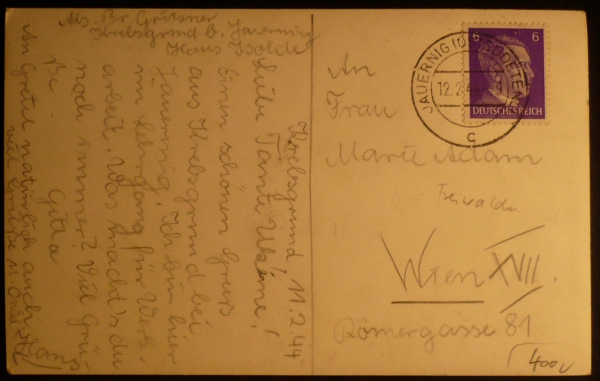 Abs. Br. Grützner
Krebsgrund b. Jauernig
Haus Isolde
Krebsgrund, 11.2.44
Liebe Tante
Einen schönen Gruß
aus Krebsgrund bei
Jauernig. Ich bin hier
im Lehrgang für Werk-
arbeit. Was macht's du
noch immer? Viel Grü-
ße. Gitta
An Gretel natürlich auch
viel Grüße
JAUERNIG SUDETEN
12.2.44
c
6 6
DEUTSCHES REICH
An
Frau
Marie Adam
Freiwaldau
Wien XVII.
Römergasse 81
400